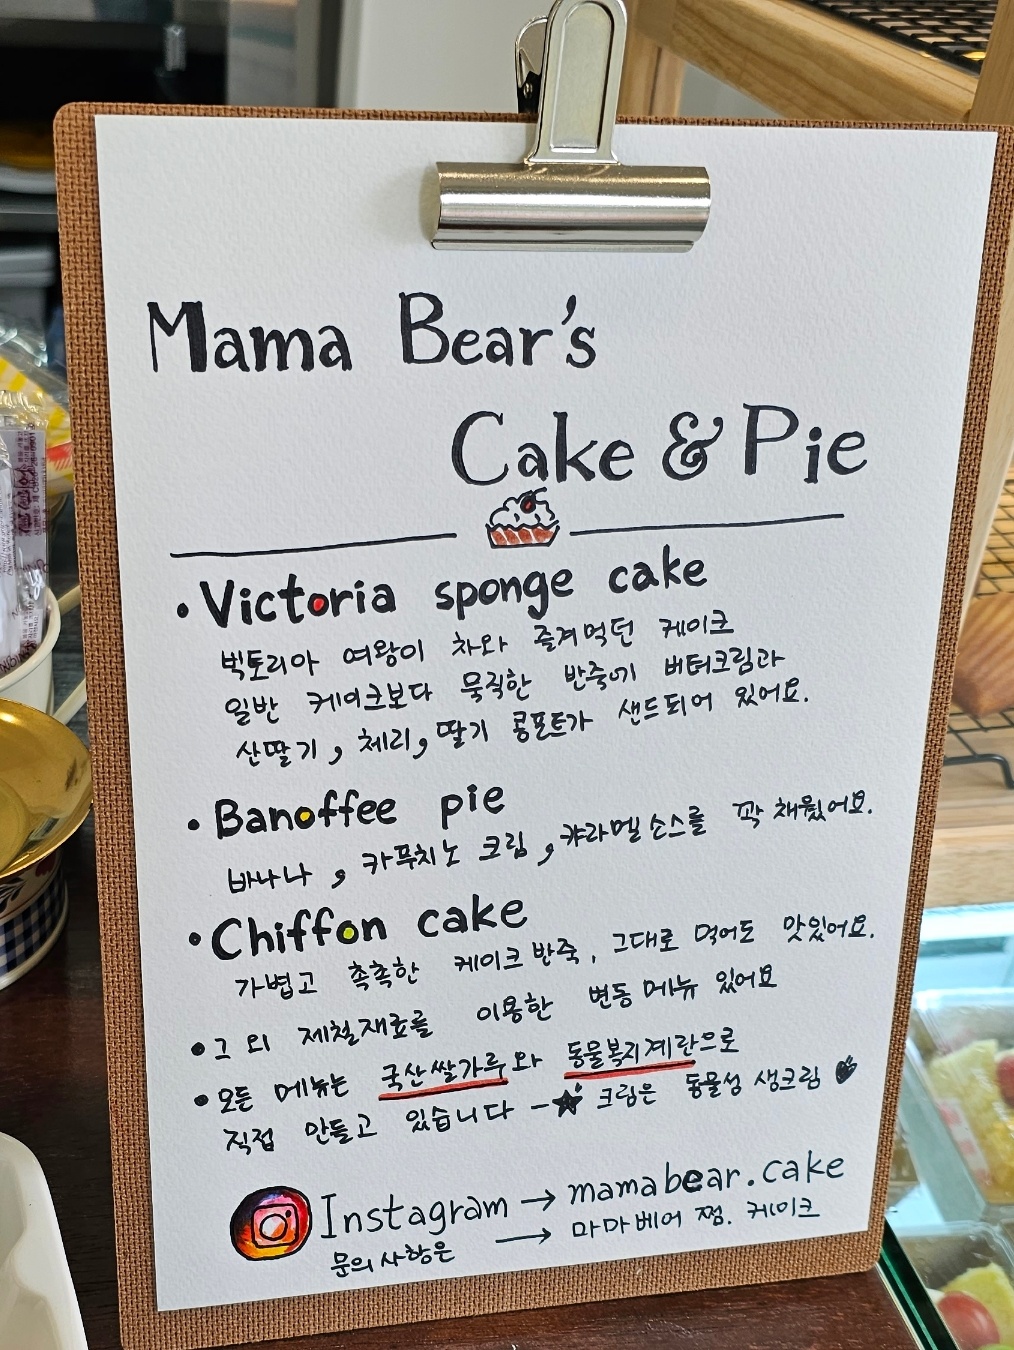 Mama Bear's
Cake & Pie
• Victoria sponge cake
빅토리아 여왕이 차와 즐겨먹던 케이크
일반 케이크보다 묵직한 반죽에 버터크림과
산딸기, 체리, 딸기 콩포트가 샌드되어 있어요.
• Banoffee pie
바나나, 카푸치노 크림, 캬라멜소스를 꽉 채웠어요.
• Chiffon cake
가볍고 촉촉한 케이크반죽, 그대로 먹어도 맛있어요.
• 그 외 제철재료를 이용한 변동메뉴 있어요
• 모든 메뉴는 국산쌀가루와 동물복지계란으로
직접 만들고 있습니다 - ★ 크림은 동물성 생크림
Instagram → mamabear.cake
문의사항은 → 마마베어 쨈. 케이크